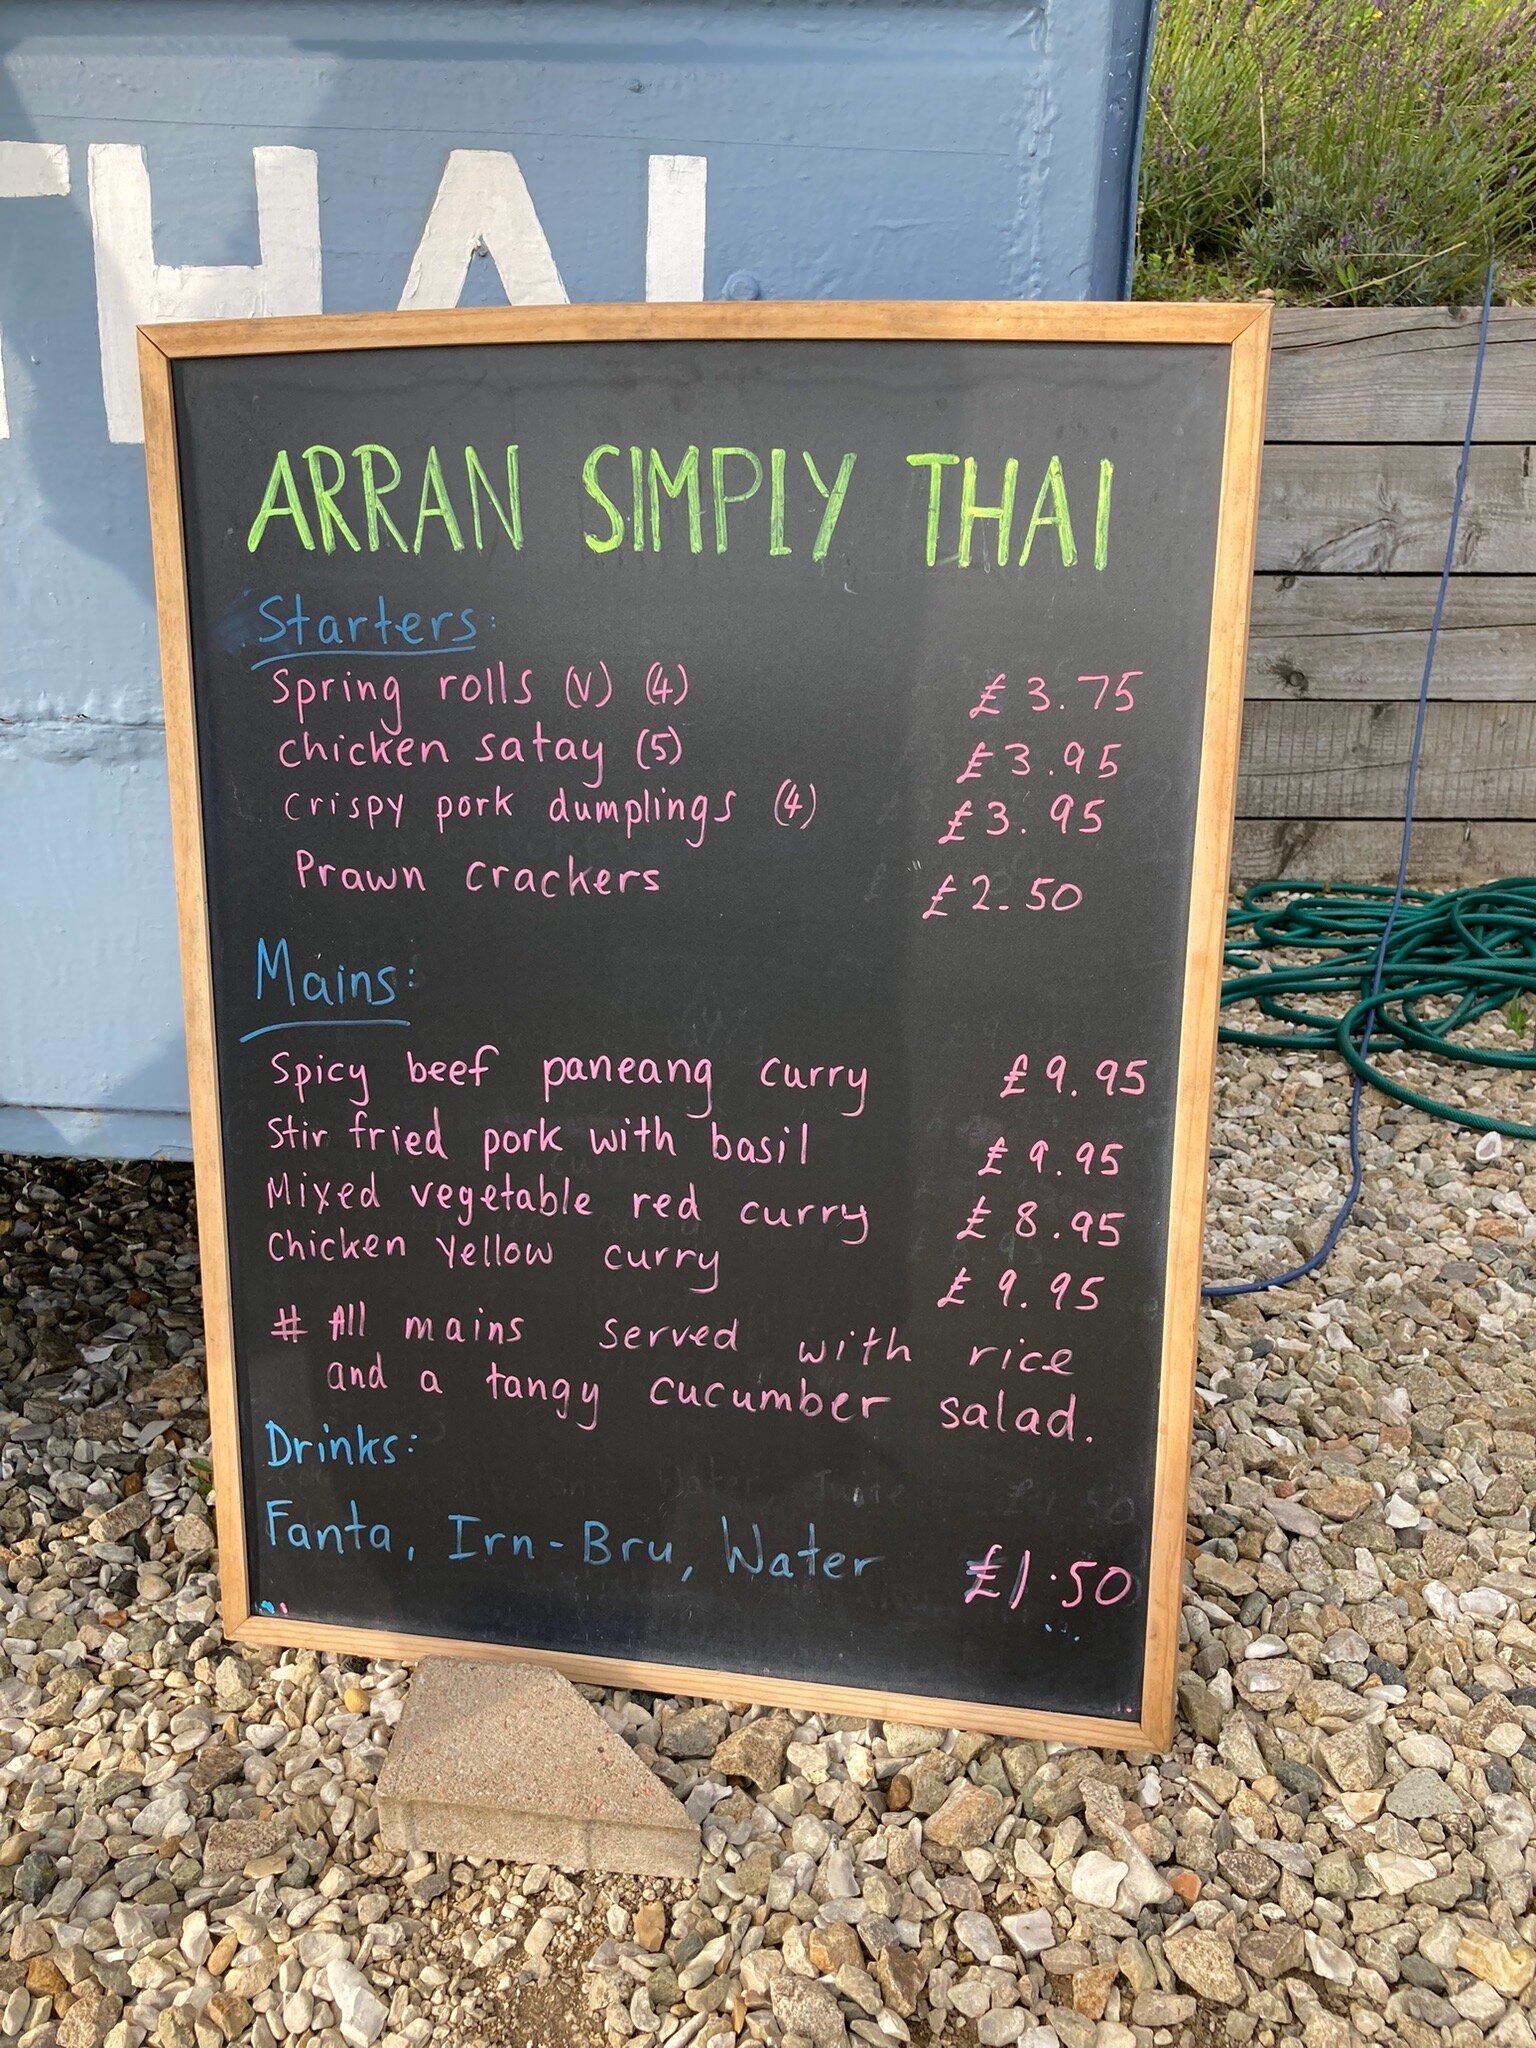 THAI
ARRAN SIMPLY THAI
Starters:
Spring rolls (V) (4) £3.75
Chicken satay (5) £3.95
Crispy pork dumplings (4) £3.95
Prawn crackers £2.50
Mains:
Spicy beef paneang curry £9.95
Stir fried pork with basil £9.95
Mixed vegetable red curry £8.95
Chicken Yellow curry £9.95
# All mains served with rice
and a tangy cucumber salad.
Drinks:
Fanta, Irn-Bru, Water £1.50